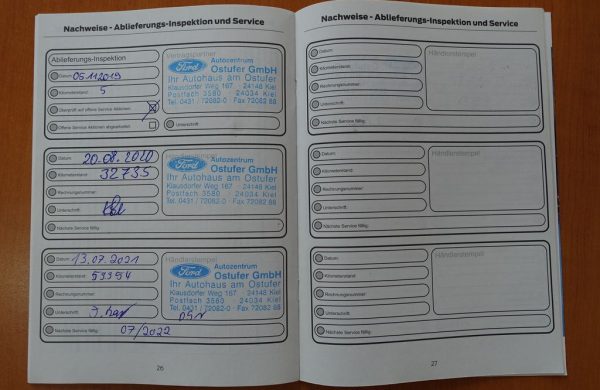 Nachweise - Ablieferungs-Inspektion und Service
Ablieferungs-Inspektion
Datum: 05.11.2019
Kilometerstand: 5
Überprüft auf offene Service Aktionen
Offene Service Aktionen abgearbeitet
Vertragspartner
Ford
Autozentrum
Ostufer GmbH
Ihr Autohaus am Ostufer
Klausdorfer Weg 167 · 24148 Kiel
Postfach 3580 · 24034 Kiel
Tel. 0431 / 72082-0 · Fax 72082 88
Unterschrift:
Datum: 20.08.2020
Kilometerstand: 32735
Rechnungsnummer:
Unterschrift:
Nächste Service fällig:
Ford
Autozentrum
Ostufer GmbH
Ihr Autohaus am Ostufer
Klausdorfer Weg 167 · 24148 Kiel
Postfach 3580 · 24034 Kiel
Tel. 0431 / 72082-0 · Fax 72082 88
Datum: 13.07.2021
Kilometerstand: 53354
Rechnungsnummer:
Unterschrift:
Nächste Service fällig: 07/2022
Händlerstempel
Ford
Autozentrum
Ostufer GmbH
Ihr Autohaus am Ostufer
Klausdorfer Weg 167 · 24148 Kiel
Postfach 3580 · 24034 Kiel
Tel. 0431 / 72082-0 · Fax 72082 88
26
Nachweise - Ablieferungs-Inspektion und Service
Datum:
Kilometerstand:
Rechnungsnummer:
Unterschrift:
Nächste Service fällig:
Händlerstempel
Datum:
Kilometerstand:
Rechnungsnummer:
Unterschrift:
Nächste Service fällig:
Händlerstempel
Datum:
Kilometerstand:
Rechnungsnummer:
Unterschrift:
Nächste Service fällig:
Händlerstempel
27